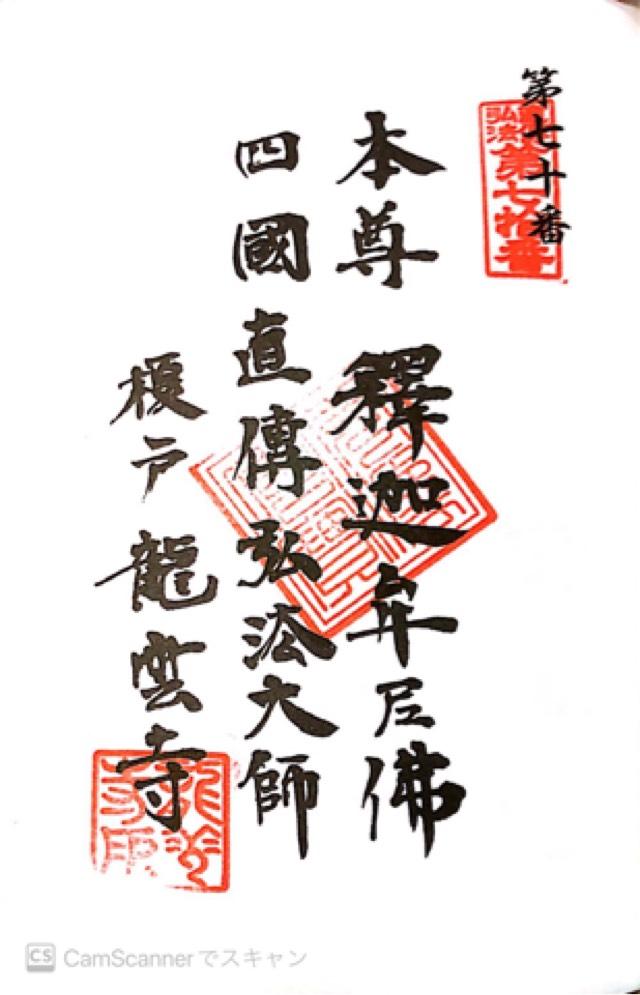 第七十番
弘法
第七拾番
本尊 釋迦牟尼佛
四國直傳弘法大師
榎戸 龍雲寺
CS CamScannerでスキャン